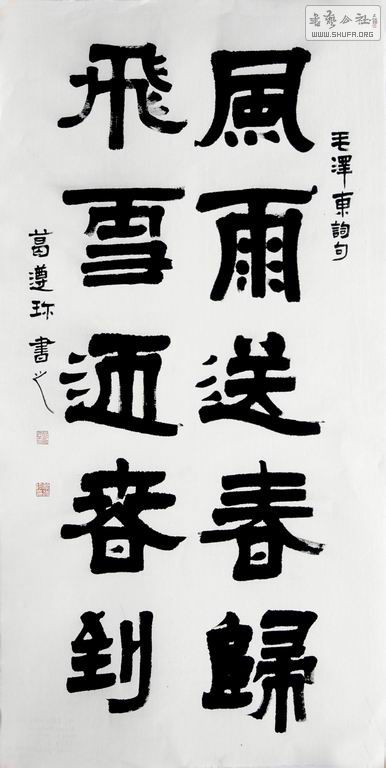 书艺公社
WWW.SHUFA.ORG
毛澤東詞句
風雨送春歸
飛雪迎春到
葛遵珎書之